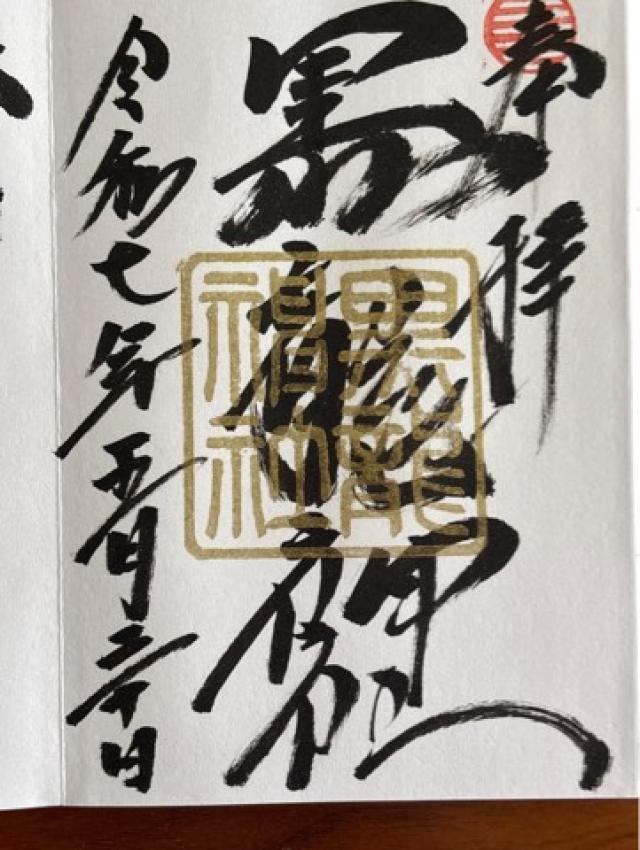 奉拝
黒龍神社
令和七年五月二十日
黒龍
神社